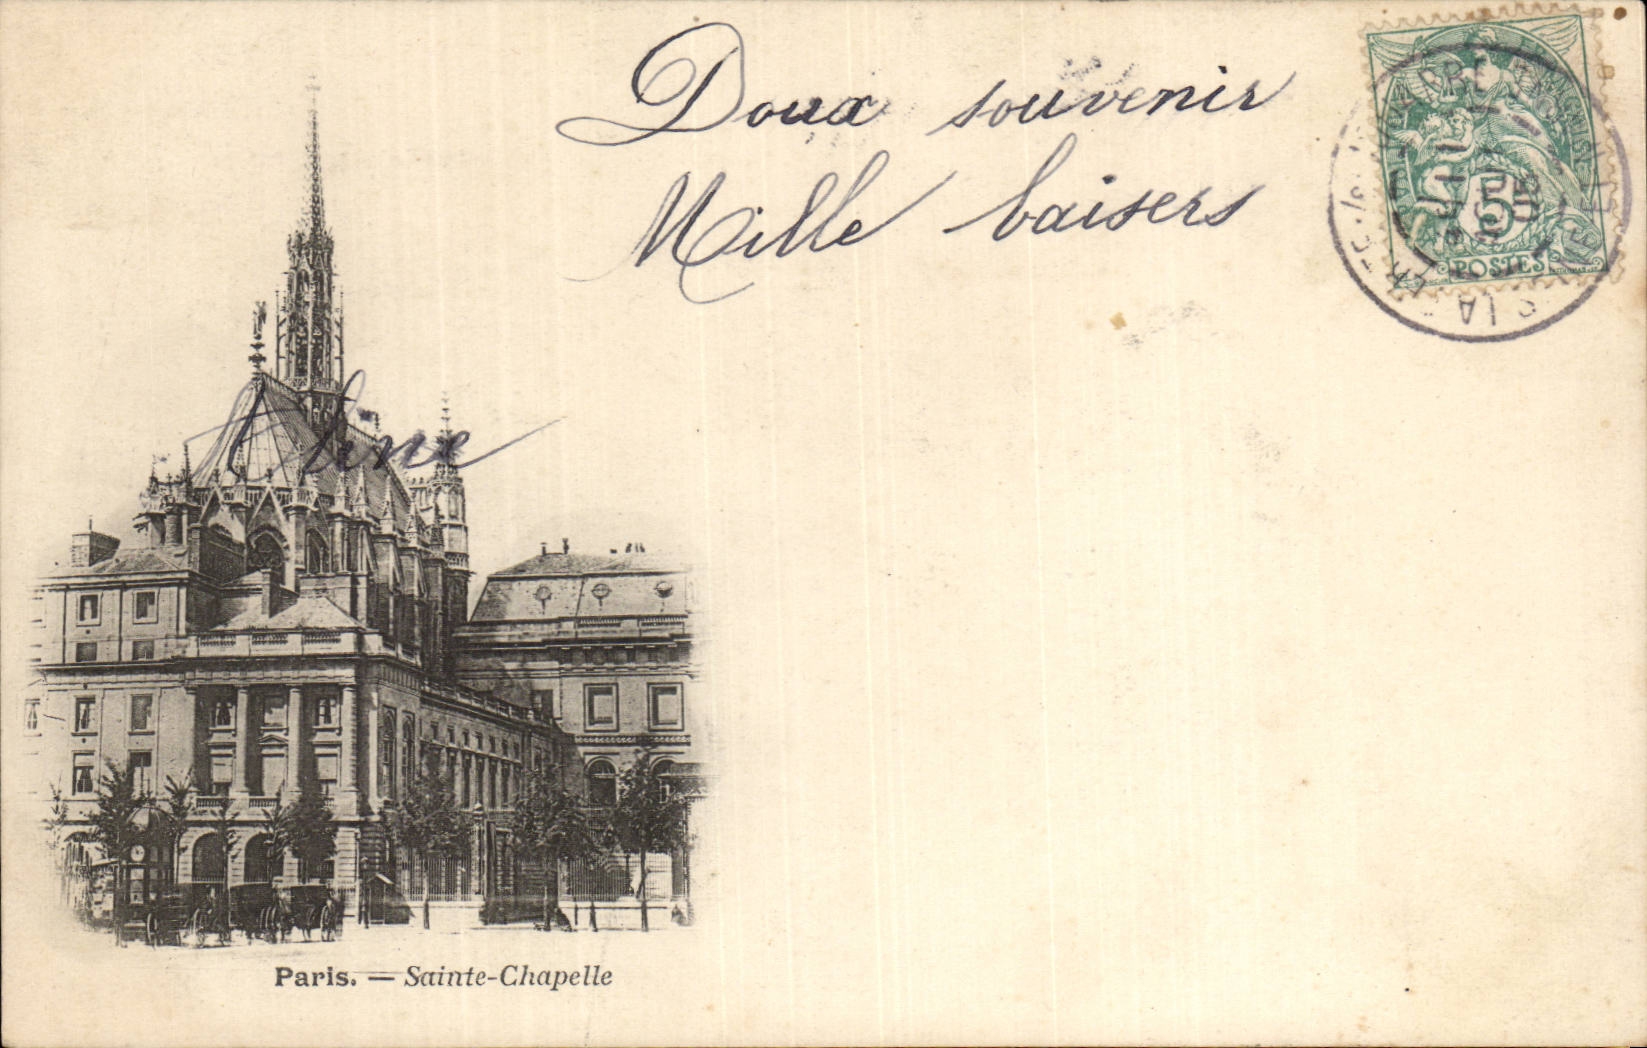 Doux souvenir
Mille baisers
5
POSTES
05
Paris. — Sainte-Chapelle